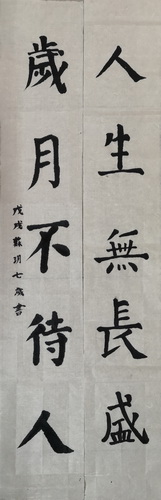 人生無長盛
歲月不待人
戊戌蘇玥七歲書